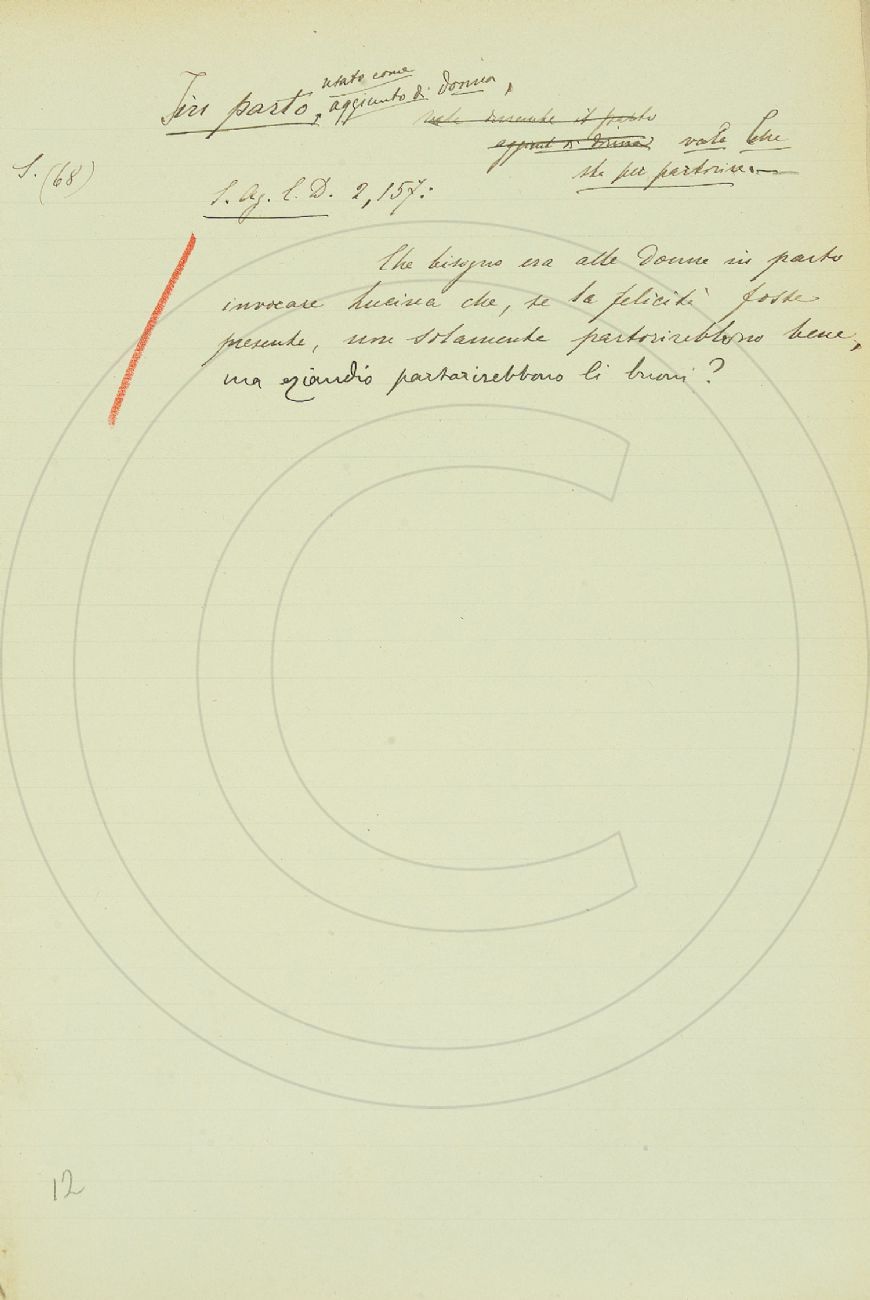 In parto, usato come
aggiunto di donna,
vale durante il parto
aggiunt. di donna vale Che
sta per partorire. —
S. (68)
S. Ag. C. D. 2, 157:
Che bisogno era alle donne in parto
invocare Lucina che, se la felicità fosse
presente, non solamente partorirebbono bene,
ma eziandio partorirebbono li buoni?
12